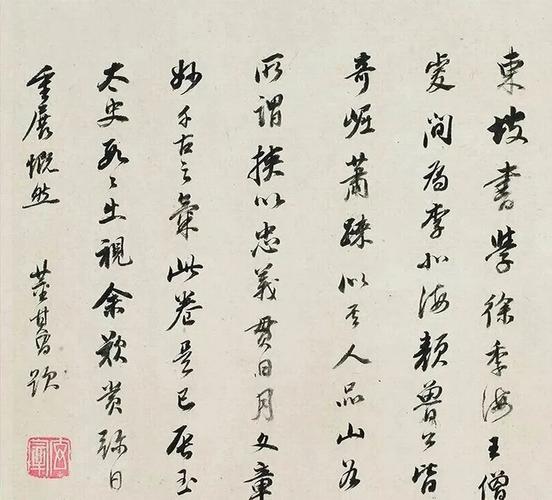 東坡書學徐季海王僧
虔間為李北海顏魯公皆
奇崛蕭疎似其人品山谷
所謂挾以忠義貫日月文章
妙千古之氣此卷是已玉
太史出視余歎賞弥日
重展慨然 董其昌題